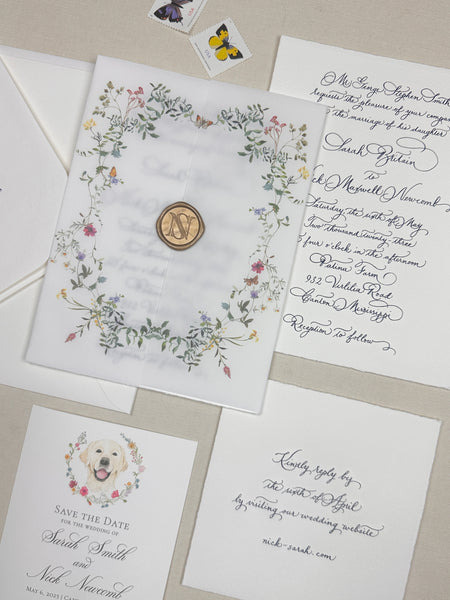 USA
USA
Mr. George Stephen Smith
requests the pleasure of your company
the marriage of his daughter
Sarah Britain
to
Maxwell Newcomb
Saturday the sixth of May
Two thousand twenty-three
four o'clock in the afternoon
Farm
932 Virlilia Road
Canton Mississippi
Reception to follow
N
Kindly reply by
the sixth of April
by visiting our wedding website
nick-sarah.com
Save the Date
for the wedding of
Sarah Smith
and
Nick Newcomb
May 6, 2023